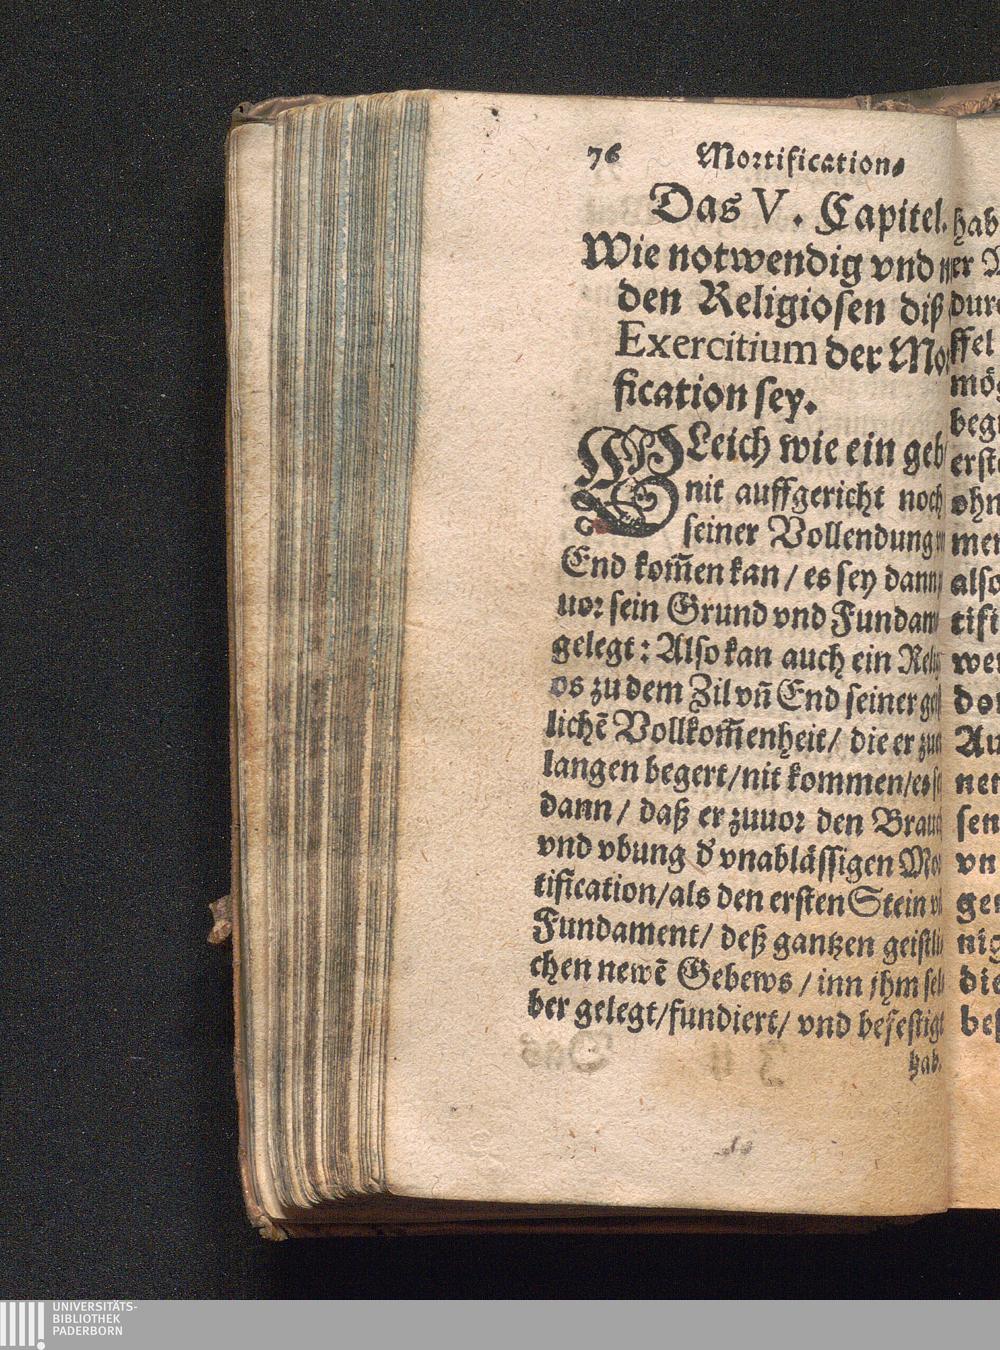 76 Mortification⸗
Das V. Capitel.
Wie notwendig vnd
den Religiosen diß
Exercitium der Mo
fication sey.
GLeich wie ein geb
nit auffgericht noch
seiner Vollendung
End kom̄en kan / es sey dann
uor sein Grund vnd Fundam
gelegt: Also kan auch ein Reli
os zu dem Zil vn̄ End seiner
lichē Vollkom̄enheit / die er zu
langen begert / nit kommen / es
dann / daß er zuuor den Brau
vnd vbung d' vnablässigen Mo
tification / als den ersten Stein
Fundament / deß gantzen geistli
chen newē Gebews / inn jhm sel
ber gelegt / fundiert / vnd befestigt
hab.
hab
er
durc
ffel
mög
beg
erste
ohn
men
also
tifi
wer
dor
Au
net
sen
vn
ge
nig
die
bes
UNIVERSITÄTS-
BIBLIOTHEK
PADERBORN